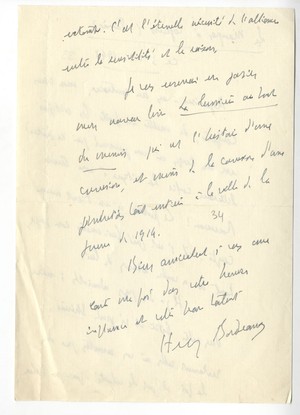 volonté. C'est l'éternelle nécessité de l'alliance
entre la sensibilité et la raison
Je vous enverrai en janvier
mon nouveau livre La lumière au bout
du chemin qui est l'histoire d'une
conversion, et même de la conversion d'une
génération tout entière à la veille de la
guerre de 1914.
34
Bien amicalement, je vous
votre heureuse
influence et votre beau talent
Henry Bordeaux